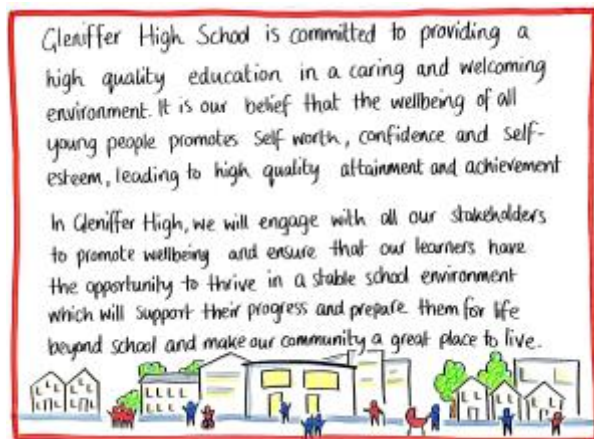 Gleniffer High School is committed to providing a
high quality education in a caring and welcoming
environment. It is our belief that the wellbeing of all
young people promotes self worth, confidence and self-
esteem, leading to high quality attainment and achievement
In Gleniffer High, we will engage with all our stakeholders
to promote wellbeing and ensure that our learners have
the opportunity to thrive in a stable school environment
which will support their progress and prepare them for life
beyond school and make our community a great place to live.